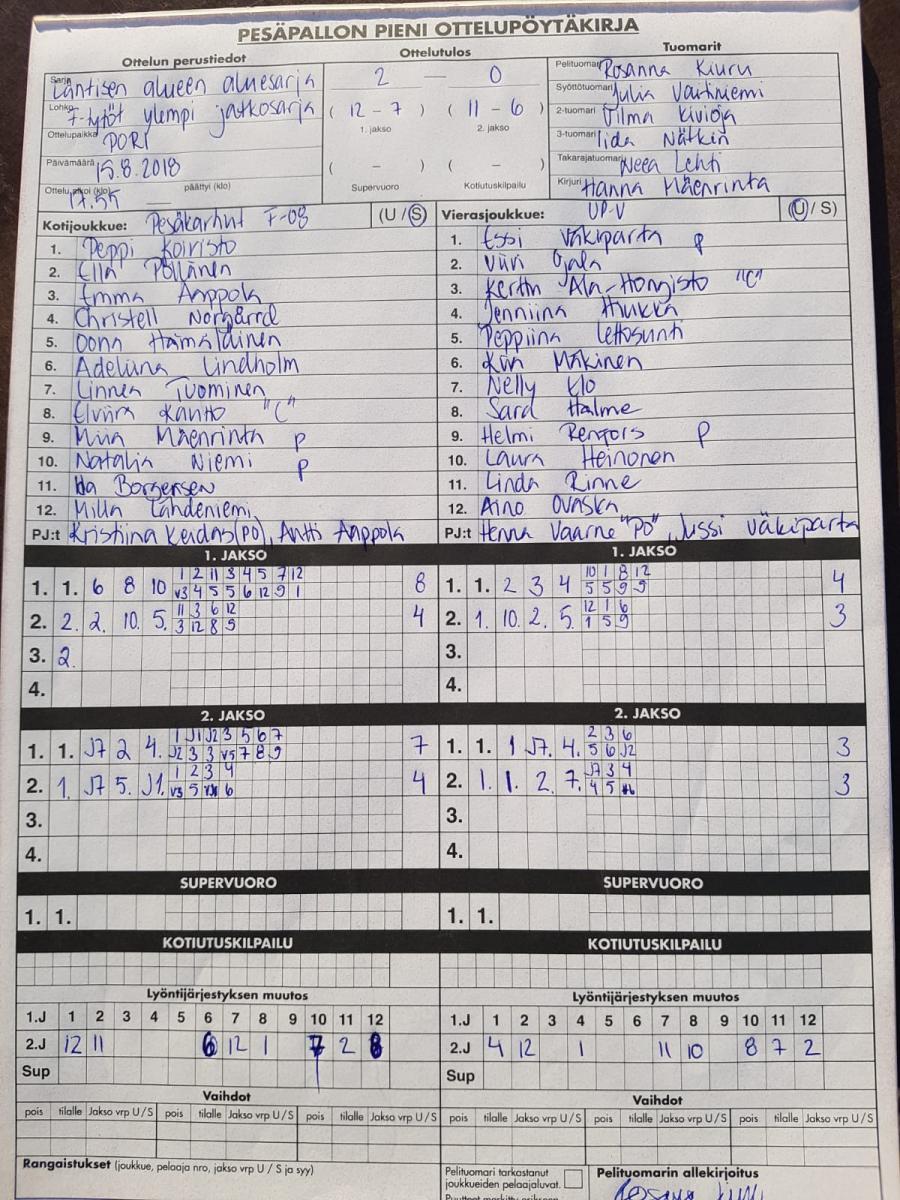 PESÄPALLON PIENI OTTELUPÖYTÄKIRJA
Ottelun perustiedot
Sarja Läntisen alueen aluesarja
Lohko F-tytöt ylempi jatkosarja
Ottelupaikka PORI
Päivämäärä 15.8.2018
Ottelu alkoi (klo) 17.55 päättyi (klo)
Ottelutulos
2 — 0
( 12 - 7 ) ( 11 - 6 )
1. jakso 2. jakso
( - ) ( - )
Supervuoro Kotiutuskilpailu
Tuomarit
Pelituomari Rosanna Kiuru
Syöttötuomari Julia Vartiniemi
2-tuomari Vilma Kivioja
3-tuomari Iida Nätkin
Takarajatuomari Neea Lehti
Kirjuri Hanna Mäenrinta
Kotijoukkue: Pesäkarhut F-08 (U / S)
1. Peppi Koivisto
2. Ella Pöllänen
3. Emma Aappola
4. Christell Norgårrd
5. Oona Hämäläinen
6. Adeliina Lindholm
7. Linnea Tuominen
8. Elviira Kantto "C"
9. Miia Mäenrinta P
10. Natalia Niemi P
11. Ida Borgersen
12. Milla Lähdeniemi
PJ:t Kristiina (PO), Antti Aappola
Vierasjoukkue: UP-V (U / S)
1. Essi Väkiparta P
2. Viivi Ojala
3. Kerttu Ala-Hongisto "C"
4. Jenniina Hiukka
5. Peppiina Lettosunti
6. Mäkinen
7. Nelly Elo
8. Sara Halme
9. Helmi Rengors P
10. Laura Heinonen
11. Linda Rinne
12. Aino Ovaska
PJ:t Henna Vaarne "PO", Jussi Väkiparta
1. JAKSO
1. 1. 6 8 10 1 2 11 3 4 5 7 12 8
V3 4 5 5 6 12 9 1
2. 2. 2. 10. 5. 11 3 6 12 4
3 12 8 9
3. 2.
4.
1. JAKSO
1. 1. 2 3 4 10 1 8 12 4
5 5 9 9
2. 1. 10. 2. 5. 12 1 6 3
1 5 9
3.
4.
2. JAKSO
1. 1. J7 2 4. 1 J1 J2 3 5 6 7 7
J2 3 3 V5 7 8 9
2. 1. J7 5. J1. 1 2 3 4 4
V3 5 6
3.
4.
2. JAKSO
1. 1. 1 J7. 4. 2 3 6 3
5 6 J2
2. 1. 1. 2. 7. J7 3 4 3
4 5
3.
4.
SUPERVUORO
1. 1.
SUPERVUORO
1. 1.
KOTIUTUSKILPAILU
KOTIUTUSKILPAILU
Lyöntijärjestyksen muutos
1.J 1 2 3 4 5 6 7 8 9 10 11 12
2.J 12 11 6 12 1 7 2 8
Sup
Lyöntijärjestyksen muutos
1.J 1 2 3 4 5 6 7 8 9 10 11 12
2.J 4 12 1 11 10 8 7 2
Sup
Vaihdot
pois tilalle Jakso vrp U / S pois tilalle Jakso vrp U / S pois tilalle Jakso vrp U / S
Vaihdot
pois tilalle Jakso vrp U / S pois tilalle Jakso vrp U / S pois tilalle Jakso vrp U / S
Rangaistukset (joukkue, pelaaja nro, jakso vrp U / S ja syy)
Pelituomari tarkastanut
joukkueiden pelaajaluvat.
Pelituomarin allekirjoitus